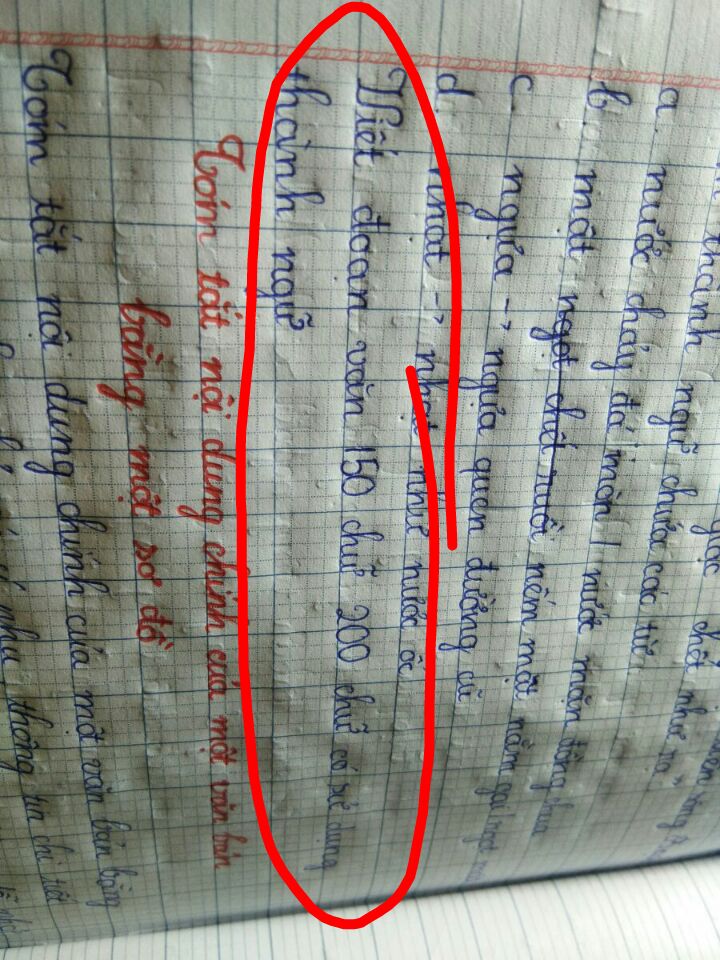 thành ngữ chứa các từ:
a. nước chảy đá mòn / nước mặn đồng chua
b. mật ngọt chết ruồi nếm mật nằm gai
c. ngựa -> ngựa quen đường cũ
d. nhạt -> nhạt như nước ốc
Viết đoạn văn 150 chữ 200 chữ có sử dụng
thành ngữ
Tóm tắt nội dung chính của một văn bản
bằng một sơ đồ
Tóm tắt nội dung chính của một văn bản bằng
thông tin chi tiết